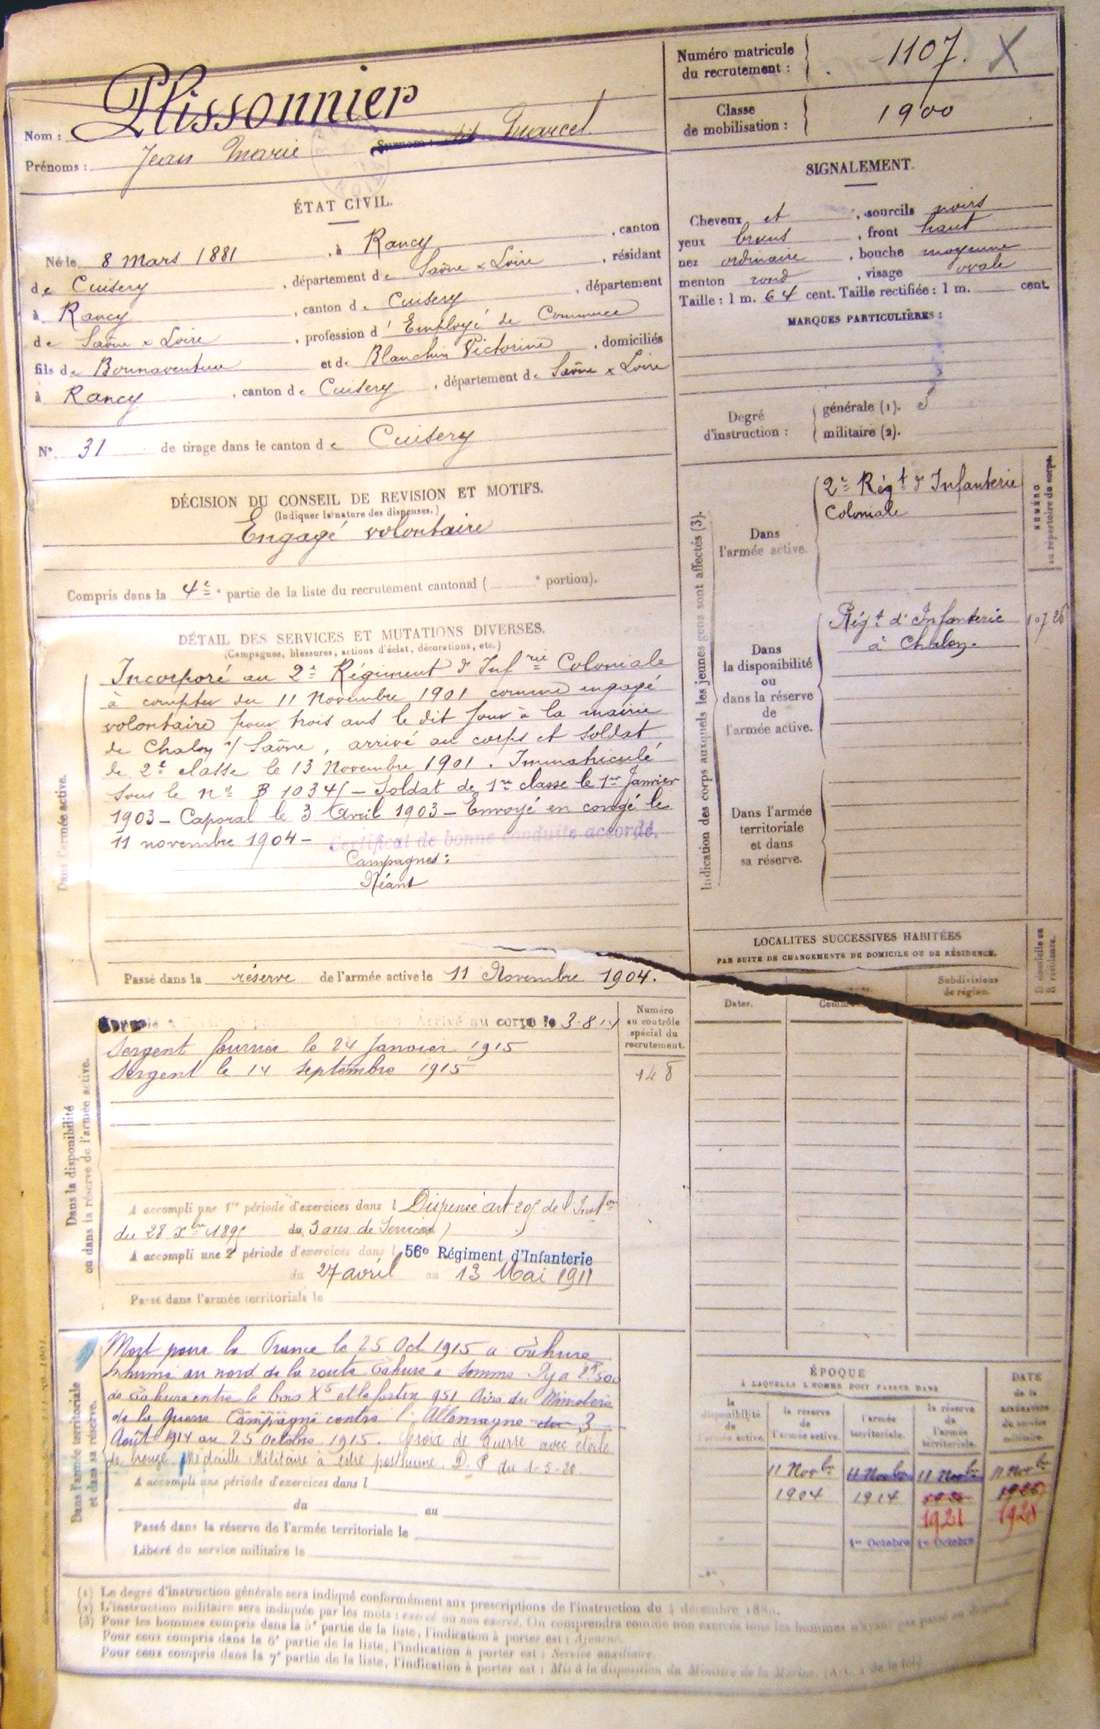 Nom : Plissonnier
Prénoms : Jean Marie Surnom : dit Marcel
Numéro matricule du recrutement : 1107. X
Classe de mobilisation : 1900
ÉTAT CIVIL.
Né le 8 mars 1881, à Rancy, canton
de Cuisery, département de Saône & Loire, résidant
à Rancy, canton de Cuisery, département
de Saône & Loire, profession d'Employé de Commerce
fils de Bonnaventure et de Blanchin Victorine, domiciliés
à Rancy, canton de Cuisery, département de Saône & Loire
N° 31 de tirage dans le canton de Cuisery
SIGNALEMENT.
Cheveux et, sourcils noirs
yeux bruns, front haut
nez ordinaire, bouche moyenne
menton rond, visage ovale
Taille : 1 m. 64 cent. Taille rectifiée : 1 m. cent.
MARQUES PARTICULIÈRES :
Degré d'instruction : générale (1). 3
militaire (2).
DÉCISION DU CONSEIL DE REVISION ET MOTIFS.
(Indiquer la nature des dispenses.)
Engagé volontaire
Compris dans la 4e partie de la liste du recrutement cantonal ( e portion).
DÉTAIL DES SERVICES ET MUTATIONS DIVERSES.
(Campagnes, blessures, actions d'éclat, décorations, etc.)
Dans l'armée active.
Incorporé au 2e Régiment d'Infrie Coloniale
à compter du 11 Novembre 1901 comme engagé
volontaire pour trois ans le dit jour à la mairie
de Chalon s/ Saône, arrivé au corps et soldat
de 2e classe le 13 Novembre 1901. Immatriculé
sous le no B 10341 – Soldat de 1re classe le 1er Janvier
1903 – Caporal le 3 Avril 1903 – Envoyé en congé le
11 novembre 1904 – Certificat de bonne conduite accordé.
Campagnes :
Néant
Passé dans la réserve de l'armée active le 11 Novembre 1904.
Indication des corps auxquels les jeunes gens sont affectés (3).
NUMÉRO au répertoire du corps.
Dans l'armée active.
2e Régt d'Infanterie
Coloniale
Dans la disponibilité ou dans la réserve de l'armée active.
Régt d'Infanterie
à Chalon.
Dans l'armée territoriale et dans sa réserve.
LOCALITÉS SUCCESSIVES HABITÉES
PAR SUITE DE CHANGEMENTS DE DOMICILE OU DE RÉSIDENCE.
Dates.
Subdivisions de région.
Dans la disponibilité ou dans la réserve de l'armée active.
Arrivé au corps le 3-8-14
Sergent fourrier le 24 Janvier 1915
Sergent le 14 septembre 1915
Numéro au contrôle spécial du recrutement.
148
A accompli une 1re période d'exercices dans l Dispensé art 209 de l'Inston
du 28 Xbre 1895 du 3 ans de Service)
A accompli une 2e période d'exercices dans l 56e Régiment d'Infanterie
du 27 avril au 13 Mai 1911
Passé dans l'armée territoriale le
Dans l'armée territoriale et dans sa réserve.
Mort pour la France le 25 Oct 1915 a Tahure
Inhumé au nord de la route Tahure à Somme Py
de Tahure entre le bois et le fortin 951 Avis du Ministère
de la Guerre Campagne contre l'Allemagne du 3
Août 1914 au 25 Octobre 1915. Croix de Guerre avec étoile
Médaille Militaire à titre posthume.
A accompli une période d'exercices dans l
du au
Passé dans la réserve de l'armée territoriale le
Libéré du service militaire le
ÉPOQUE
À LAQUELLE L'HOMME DOIT PASSER DANS
la disponibilité de l'armée active.
la réserve de l'armée active.
l'armée territoriale.
la réserve de l'armée territoriale.
DATE de la libération du service militaire.
11 Novbre 11 Novbre 11 Novbre 11 Novbre
1904 1914
1921 1928
1er Octobre 1er Octobre
(1) Le degré d'instruction générale sera indiqué conformément aux prescriptions de l'instruction du
(2) L'instruction militaire sera indiquée par les mots : exercé ou non exercé. On comprendra comme non exercés tous les hommes n'ayant pas passé
(3) Pour les hommes compris dans la 5e partie de la liste, l'indication à porter est : Ajourné.
Pour ceux compris dans la 6e partie de la liste, l'indication à porter est : Service auxiliaire.
Pour ceux compris dans la 7e partie de la liste, l'indication à porter est : Mis à la disposition du Ministre de la Marine.